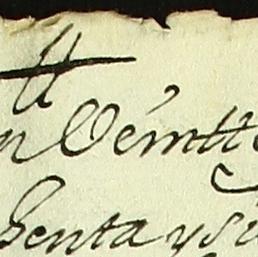 tt
n Vemtte
senta y si